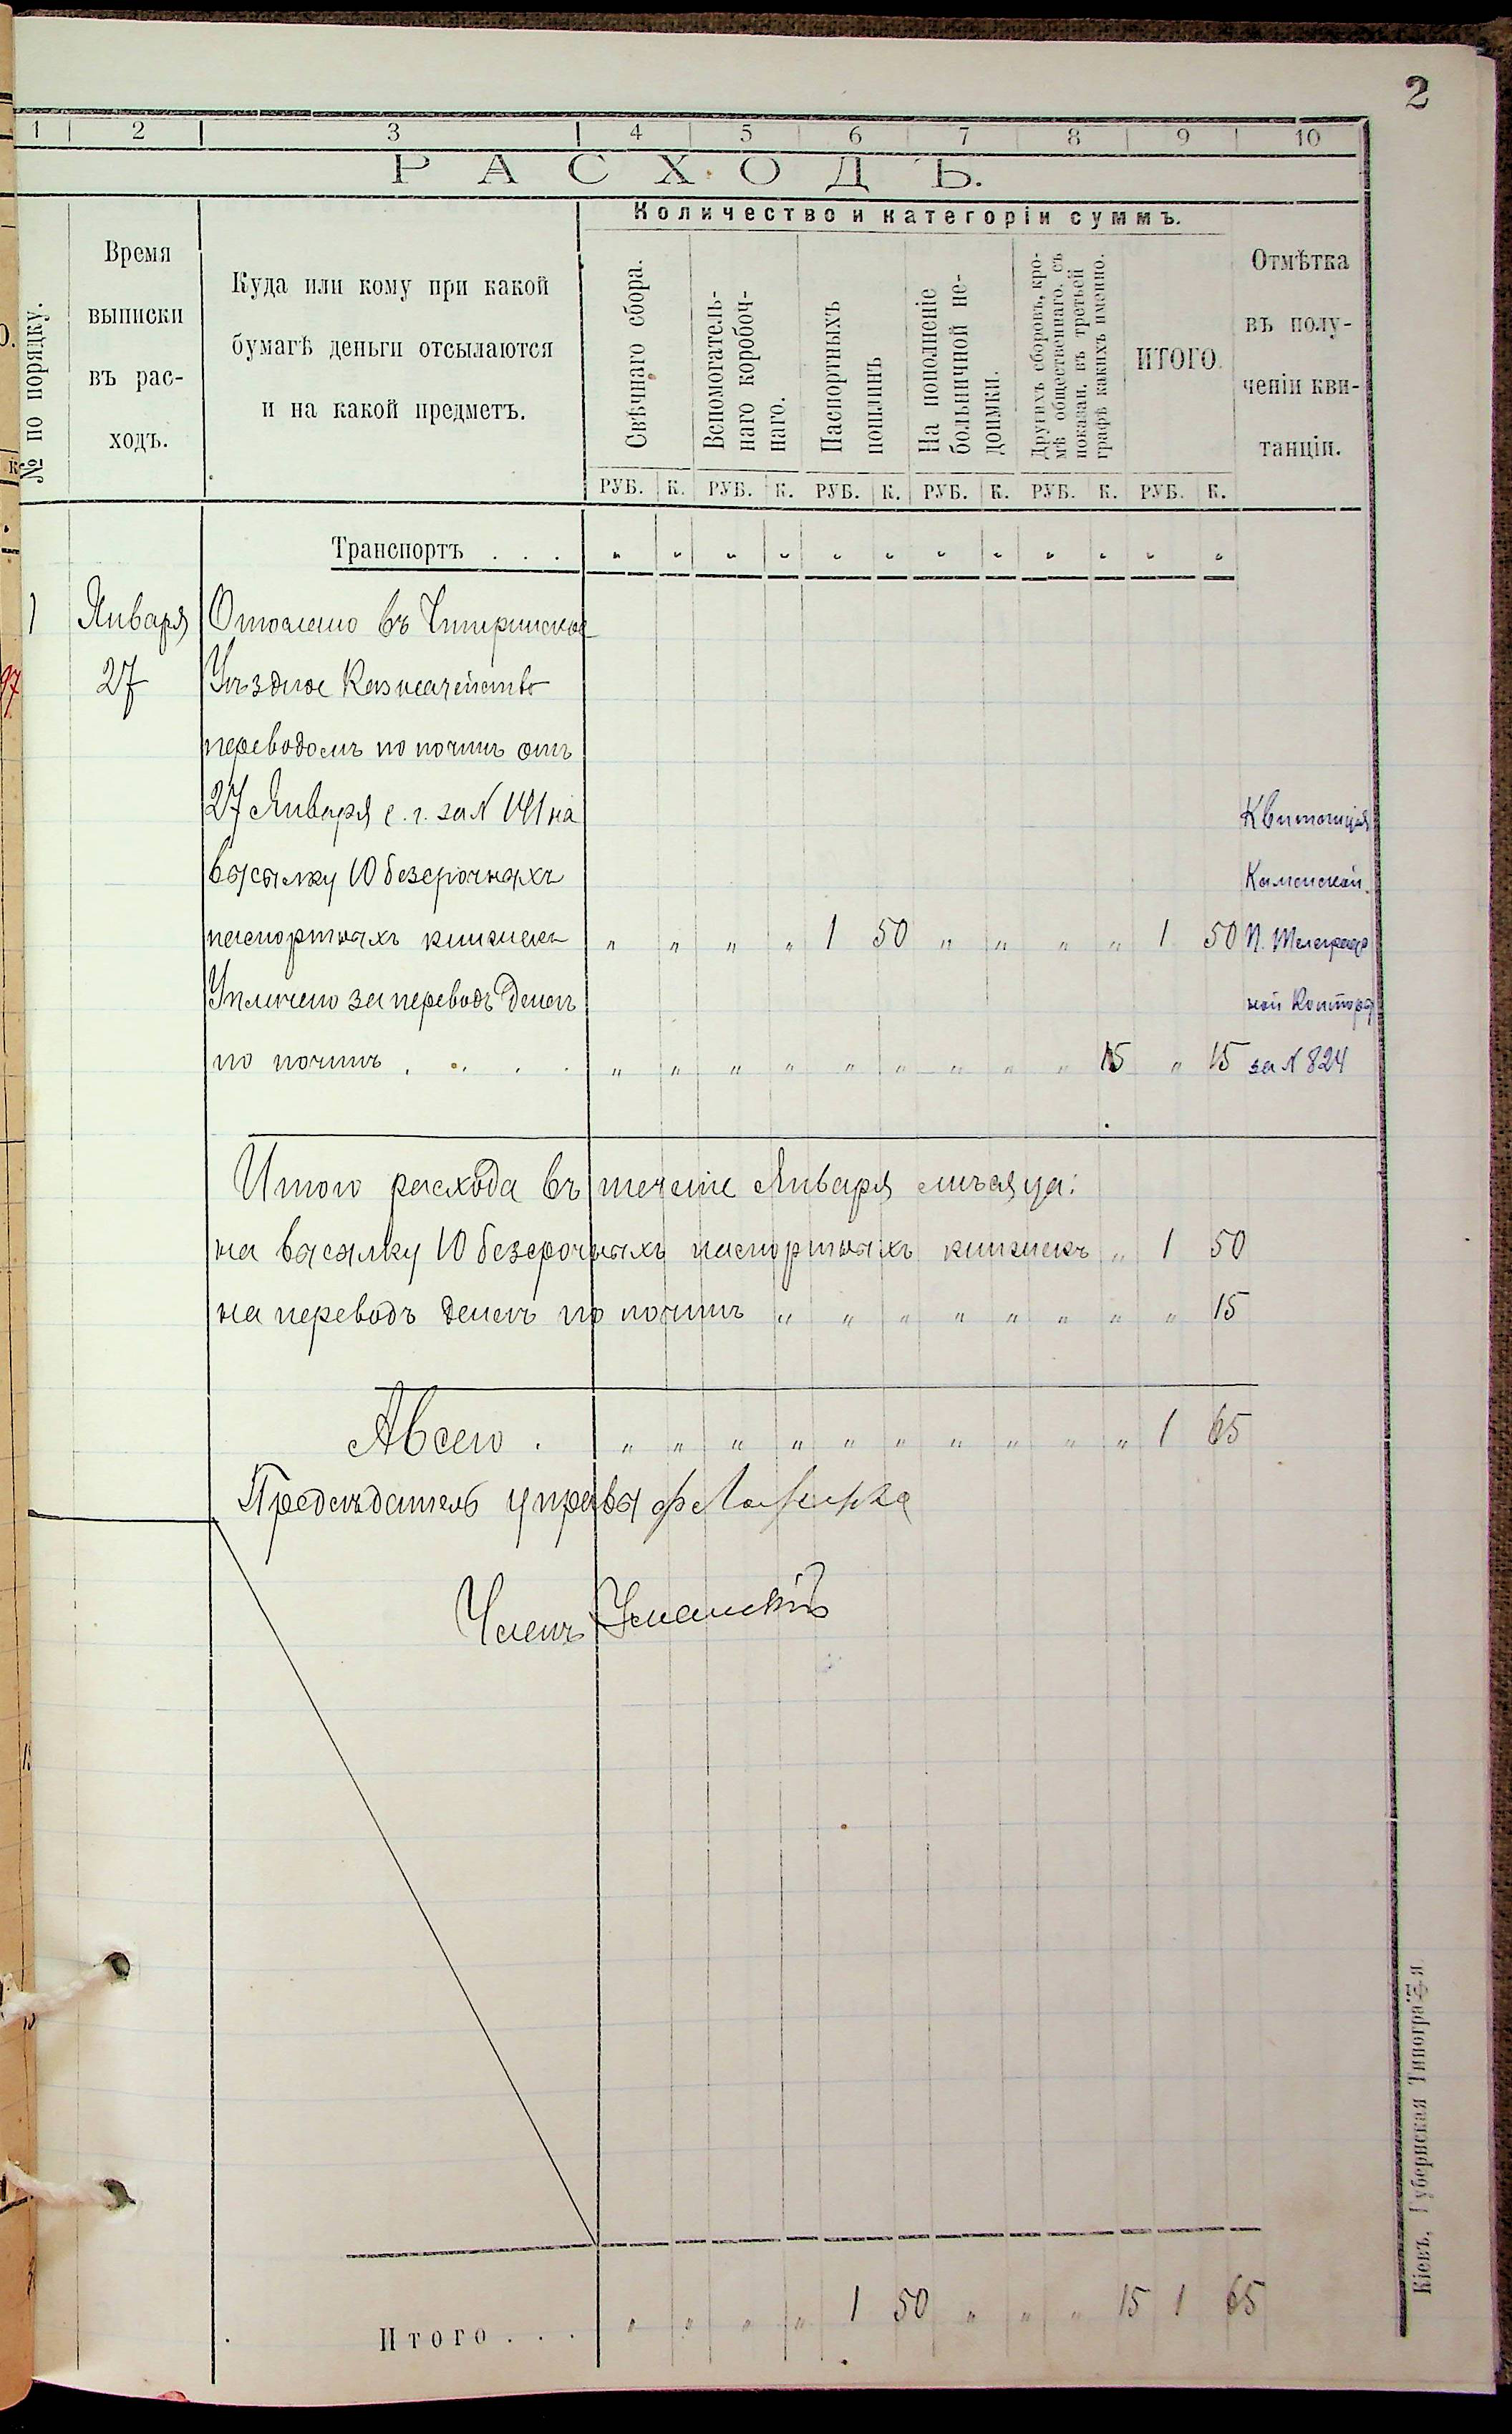 2
1 2 3 4 5 6 7 8 9 10
РАСХОДЪ.
№ по порядку.
Время
выписки
въ рас-
ходъ.
Куда или кому при какой
бумагѣ деньги отсылаются
и на какой предметъ.
Количество и категоріи суммъ.
Свѣчнаго сбора.
Вспомогатель-
наго коробоч-
наго.
Паспортныхъ
пошлинъ
На пополненіе
больничной не-
доимки.
Другихъ сборовъ, кро-
мѣ общественнаго, съ
показан. въ третьей
графѣ какихъ именно.
ИТОГО.
Отмѣтка
въ полу-
ченіи кви-
танціи.
РУБ. К. РУБ. К. РУБ. К. РУБ. К. РУБ. К. РУБ. К.
Транспортъ . . . „ „ „ „ „ „ „ „ „ „ „ „
1 Января Отослано въ Чигиринское
27 Уѣздное Казначейство
переводомъ по почтѣ отъ
27 Января с. г. за № 141 на
Квитанція
высылку 10 безсрочныхъ
Каменской
паспортныхъ книжекъ „ „ „ „ 1 50 „ „ „ „ 1 50 П. Телеграф
Уплачено за переводъ денегъ
ной Конторы
по почтѣ . . . . „ „ „ „ „ „ „ „ „ 15 „ 15 за № 824
Итого расхода въ теченіе Января мѣсяца:
на высылку 10 безсрочныхъ паспортныхъ книжекъ „ 1 50
на переводъ денегъ по почтѣ „ „ „ „ „ „ „ „ 15
А всего . „ „ „ „ „ „ „ „ „ „ 1 65
Предсѣдатель управы
Членъ Уманскій
Итого . . . „ „ „ „ 1 50 „ „ „ 15 1 65
Кіевъ, Губернская Типографія